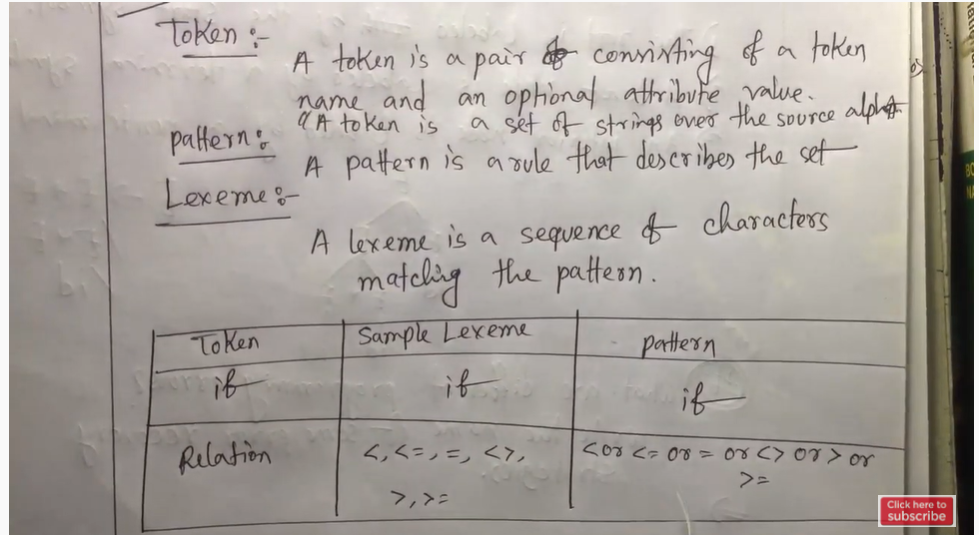 Token :-
A token is a pair of consisting of a token
name and an optional attribute value.
"A token is a set of strings over the source
pattern :
A pattern is a rule that describes the set
Lexeme :-
A lexeme is a sequence of characters
matching the pattern.
Token Sample Lexeme pattern
if if if
Relation <, <=, =, <>, < or <= or = or <> or > or
>, >= >=
Click here to
subscribe